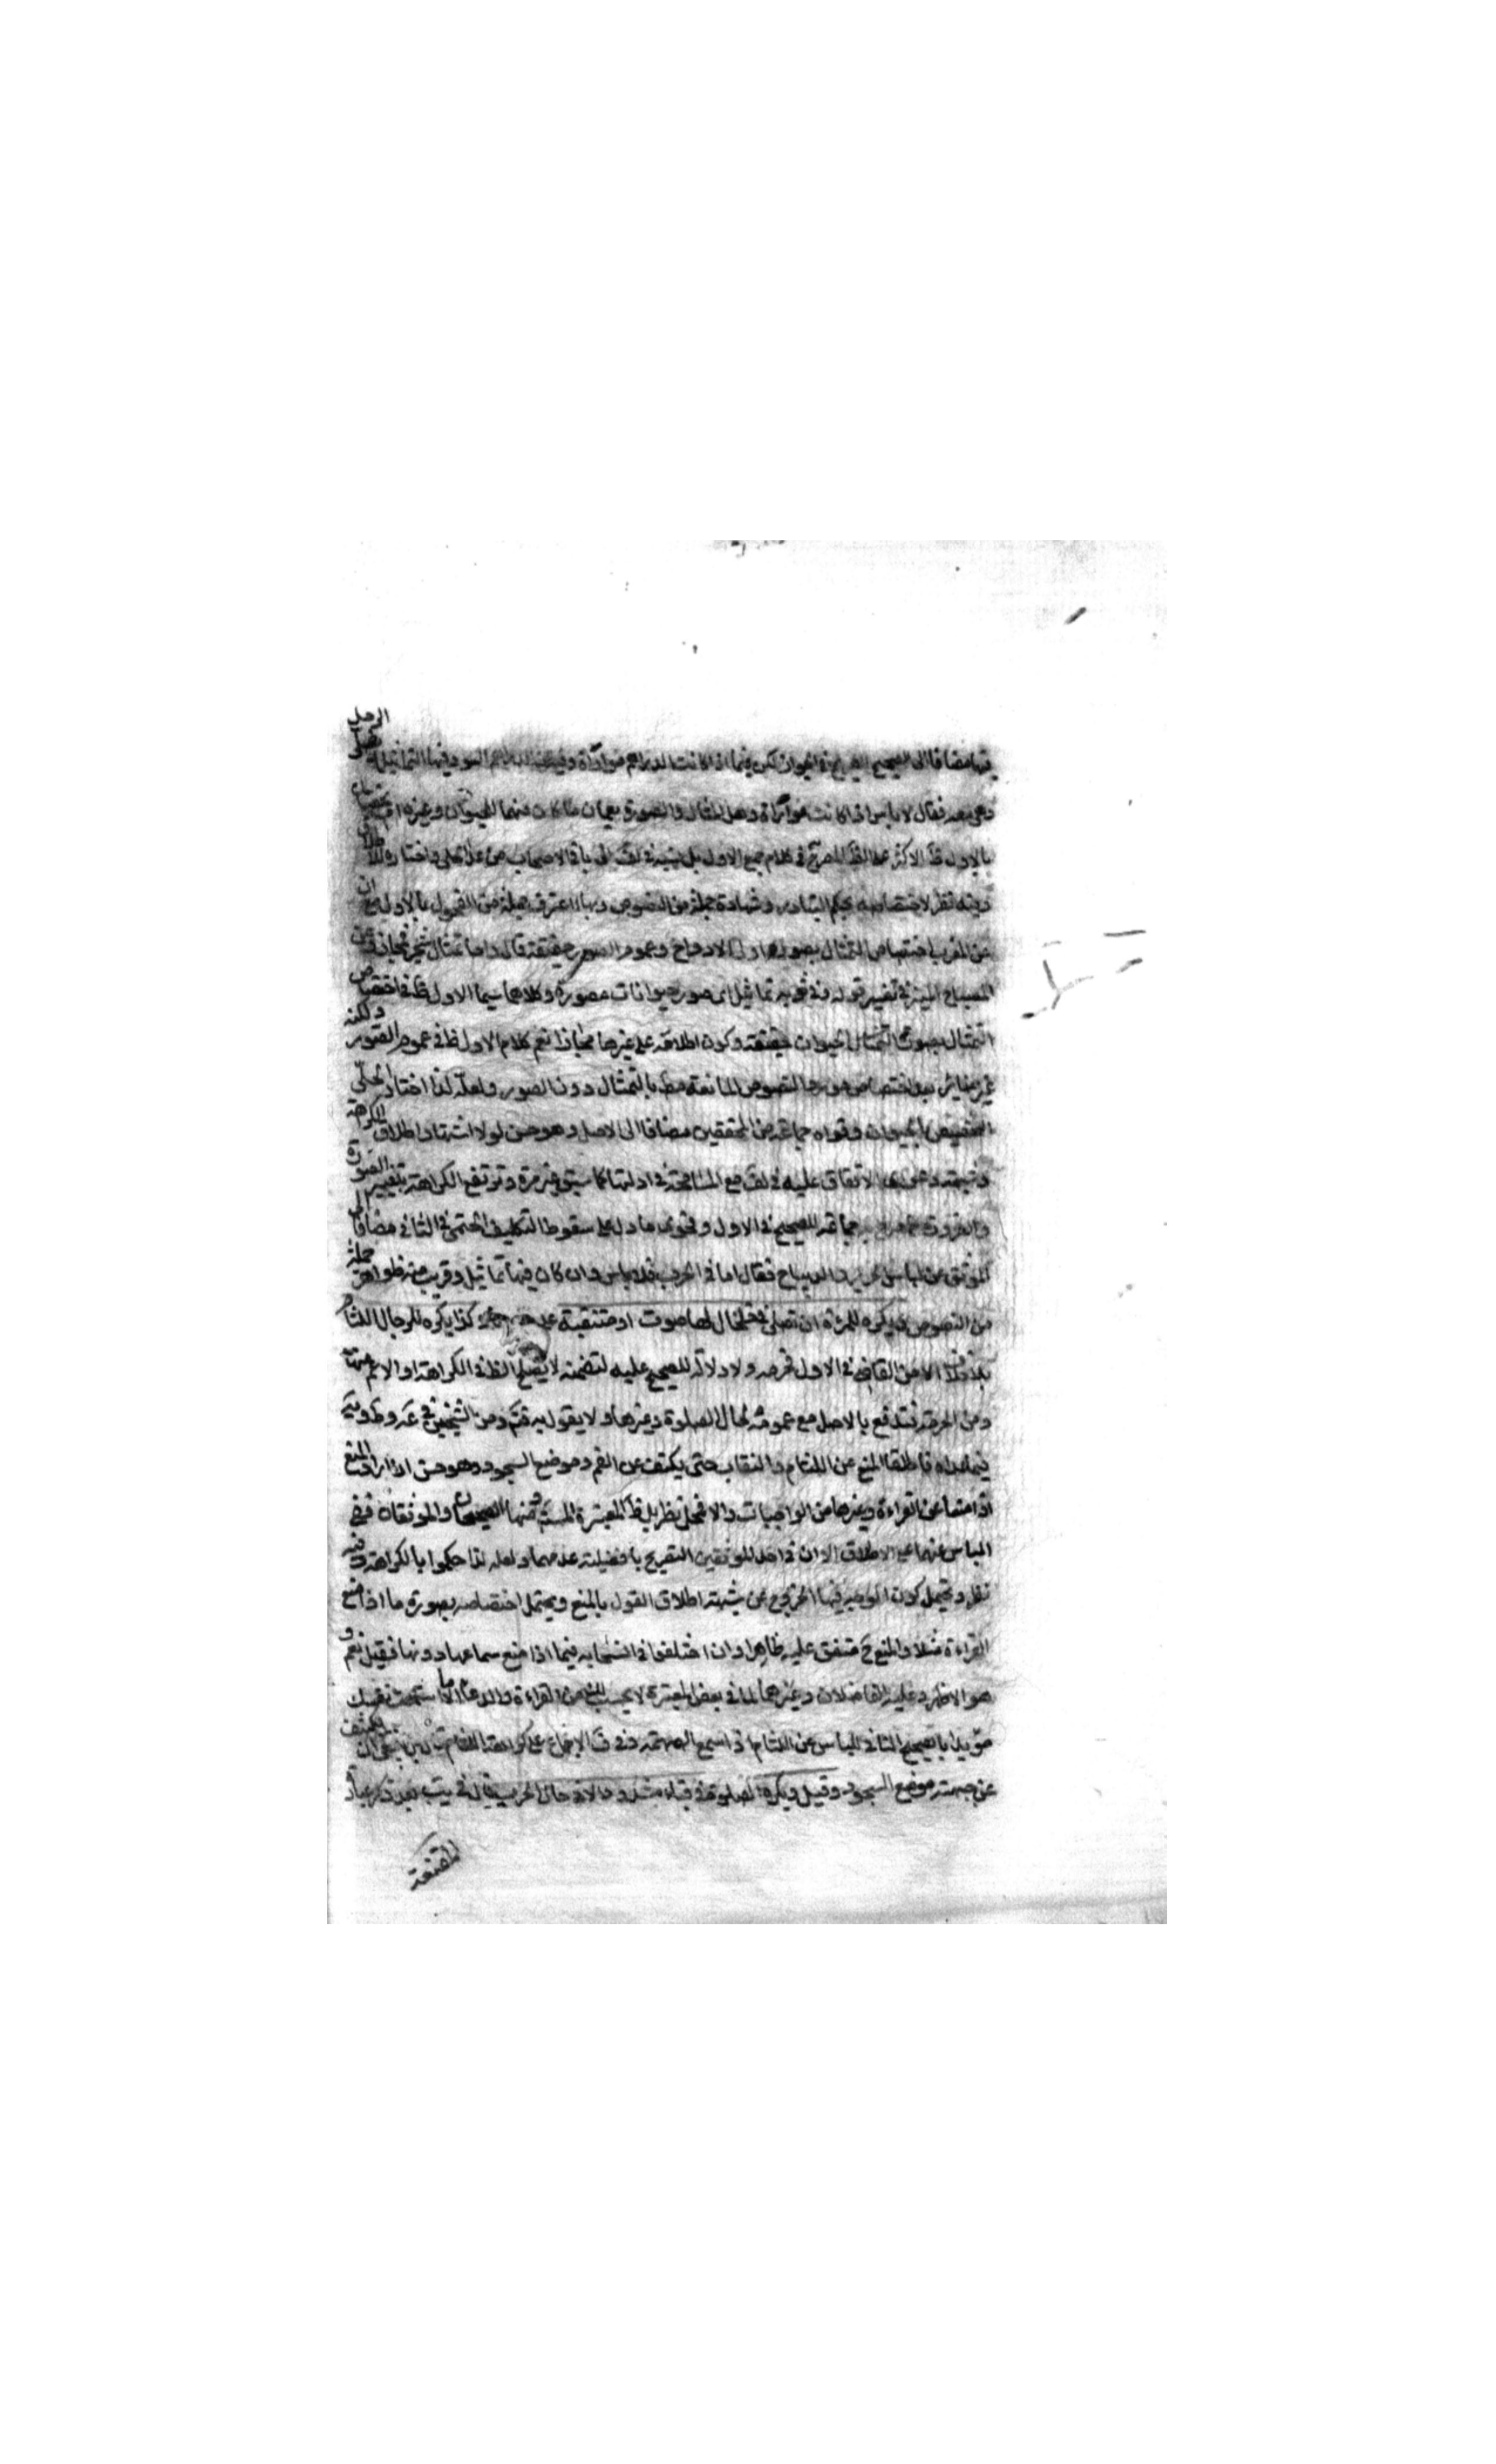 فيها مضافا الى الصحيح في اخوان لكن فيما اذا كانت الدراهم مواراة وفيه عن الدراهم السود فيها التماثيل يصلى الرجل
وهي معه فقال لا باس اذا كانت مواراة وهل المثال والصورة يعمان ما كان منهما للحيوان وغيره ام يختصان
بالاول ظ الاكثر على الظ المصرح في كلام جمع الاول بل نسبه في لف الى باقي الاصحاب عن عدا الحلي واختاروا للاطلاق
وفيه نظر لاختصاصه بحكم التبادر وشهادة جملة من النصوص وبها اعترف جملة من الفحول بالاول مع ان
عن المغرب اختصاص التمثال بصور اولي الارواح وعموم الصور حقيقة قال واما تمثال شجر فمجاز وعن
المصباح المنير في تفسير قوله وفي ثوبه تماثيل اى صور حيوانات مصورة وكلاهما سيما الاول ظ في اختصاص
التمثال بصورة الحيوان حقيقة وكون اطلاقه على غيرها مجازا نعم كلام الاول ظ في عموم الصور ولكنه
غير ضائر بعد اختصاص مورد النصوص المانعة مط بالتمثال دون الصور ولعله لذا اختار الحلى
التخصيص بالحيوان وقواه جماعة من المحققين مضافا الى الاصل وهو حسن لولا اشتهار اطلاق الكراهة
وشبهة دعوى الاتفاق عليه في لف مع المسامحة في ادلتها كما سبق غير مرة وترتفع الكراهة بتغيير الصورة
والضرورة جماعة للصحيح في الاول وفحوى ما دل على سقوط التكليف الحتمى في الثاني مضافا الى
الموثق عن لباس الحرير والديباج فقال اما في الحرب فلا باس وان كان فيها تماثيل وقريب منه ظواهر جملة
من النصوص ويكره للمرئة ان تصلى في خلخال لها صوت او متنقبة كذا يكره للرجال اللثام
بلا خلاف الا من القاضي في الاول فحرمه ولا دلالة للصحيح عليه لتضمنه لا يصلح الظ في الكراهة او الاعم منها
ومن الحرمة فتدفع بالاصل مع عمومه لحال الصلوة وغيرها ولا يقول به ومن الشيخين في
فيما عداه فاطلقا المنع عن اللثام والنقاب حتى يكشف عن الفم وموضع السجود وهو حسن ان ارادا المنع
اذا منعا عن القراءة وغيرها من الواجبات والا فمحل نظر بل ظ المعتبرة المستفيضة ومنها الصحيحان والموثقان نفى
الباس عنهما على الاطلاق الا ان في احد الموثقين التصريح بافضلية عدمهما ولعله لذا حكموا بالكراهة وفيه
نظر ويحتمل كون الوجه فيها الخروج عن شبهة اطلاق القول بالمنع ويحتمل اختصاصه بصورة ما اذا منع
القراءة مثلا والمنع ح متفق عليه ظاهرا وان اختلفا في انسحابه فيما اذا منع سماعها دونها فقيل نعم و
هو الاظهر وعليه الفاضلان وغيرهما لما في بعض المعتبرة لا يحسب لك من القراءة والدعاء الا ما اسمعت نفسك
مؤيدا بالصحيح النافى للباس عن اللثام اذا سمع الهمهمة وفي ف الاجماع على كراهة اللثام ان يكشف
عن جبهته موضع السجود وقيل ويكره الصلوة في قباء مشدود الا في حال الحرب قال في يب بعد ذكر عبارة
المقنعة